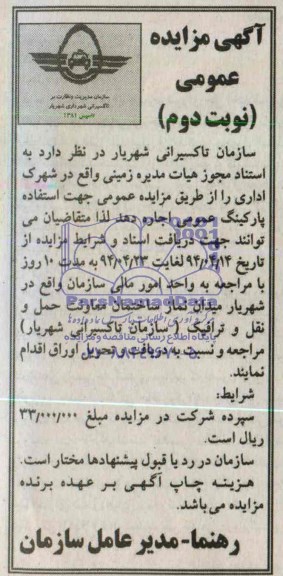 آگهی مزایده
عمومی
(نوبت دوم)
سازمان مدیریت و نظارت بر
تاکسیرانی شهرداری شهریار
تاسیس ۱۳۸۱
سازمان تاکسیرانی شهریار در نظر دارد به
استناد مجوز هیات مدیره زمینی واقع در شهرک
اداری را از طریق مزایده عمومی جهت استفاده
پارکینگ عمومی اجاره دهد لذا متقاضیان می
توانند جهت دریافت اسناد و شرایط مزایده از
تاریخ ۹۴/۰۴/۱۴ لغایت ۹۴/۰۴/۲۳ به مدت ۱۰ روز
با مراجعه به واحد امور مالی سازمان واقع در
شهریار میدان نماز ساختمان معاونت حمل و
نقل و ترافیک ( سازمان تاکسیرانی شهریار)
مراجعه و نسبت به دریافت و تحویل اوراق اقدام
نمایند.
شرایط:
سپرده شرکت در مزایده مبلغ ۳۳/۰۰۰/۰۰۰
ریال است.
سازمان در رد یا قبول پیشنهادها مختار است.
هزینه چاپ آگهی بر عهده برنده
مزایده می باشد.
رهنما-مدیر عامل سازمان
ParsNamadData
پایگاه اطلاع رسانی مناقصه و مزایده